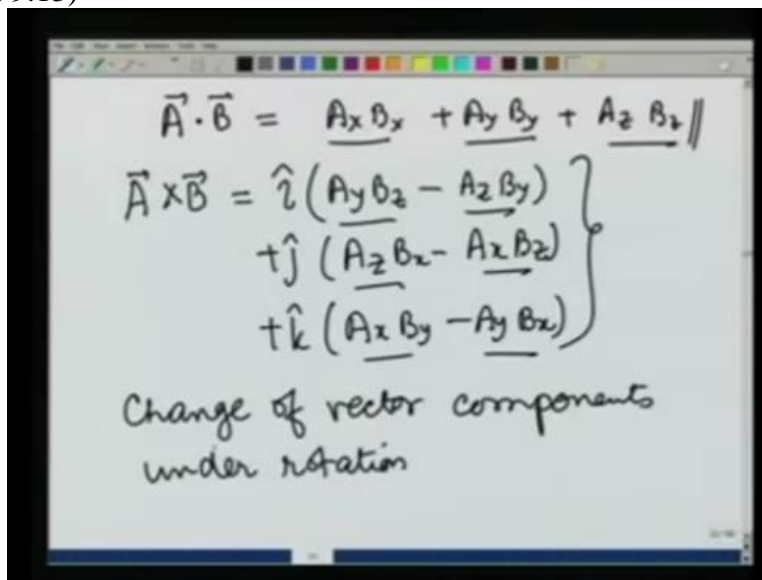 A⃗·B⃗ = AxBx + AyBy + AzBz ||
A⃗×B⃗ = î (AyBz − AzBy)
+ĵ (AzBx − AxBz)
+k̂ (AxBy − AyBx)
Change of vector components
under rotation